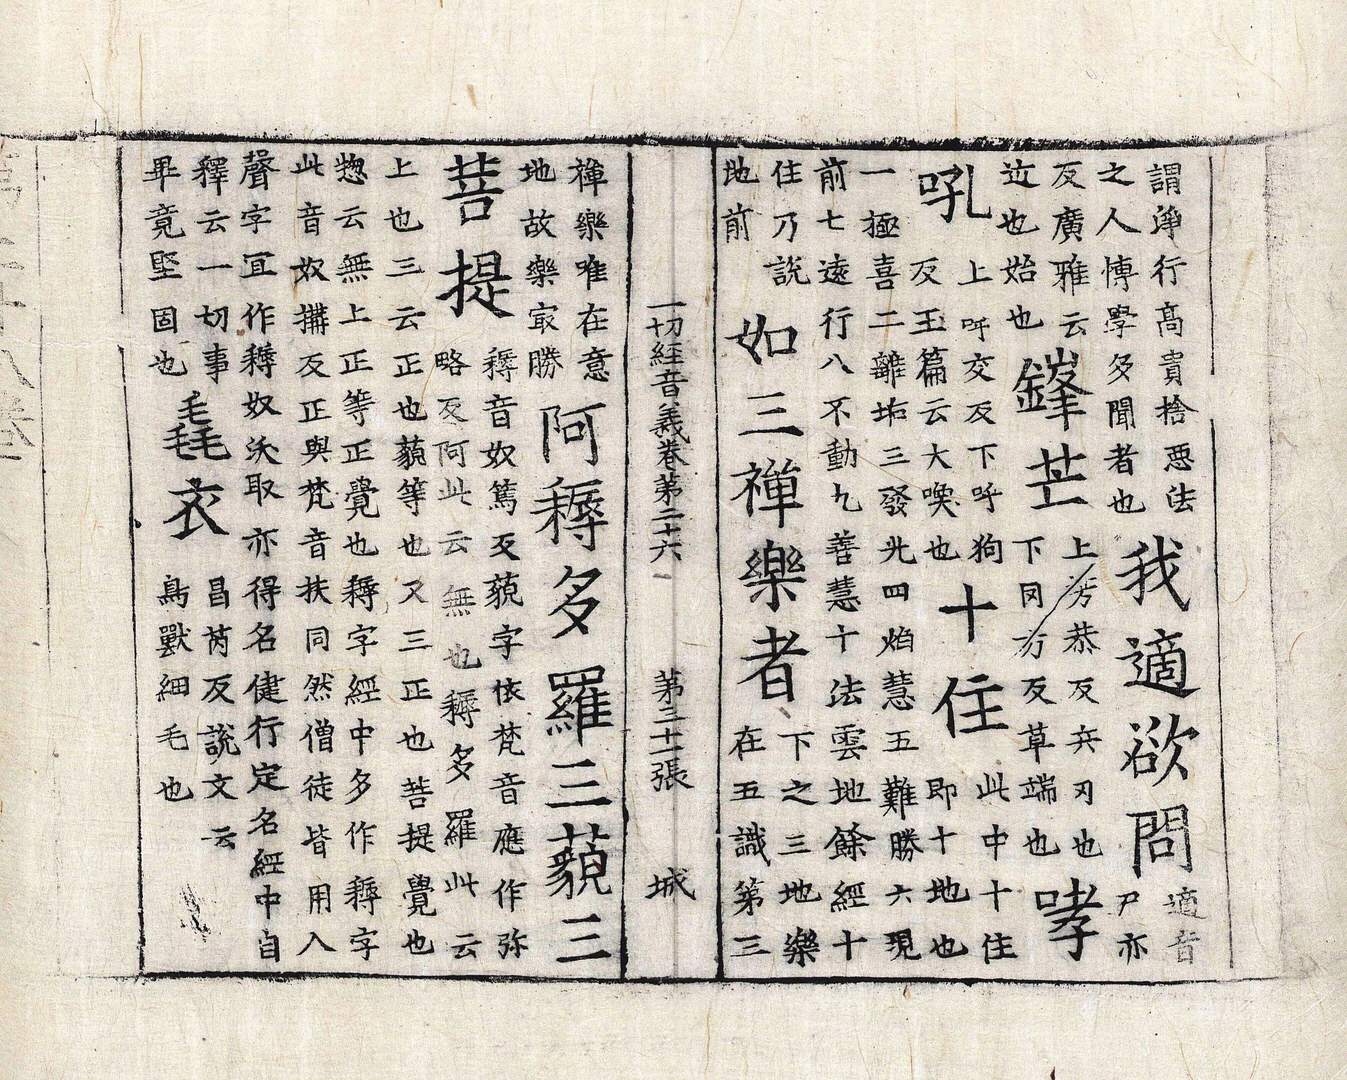 謂淨行高貴捨惡法
之人博學多聞者也
我適欲問
適音
尸亦
反廣雅云
迮也始也
鏠芒
上芳恭反兵刃也
下冈方反草端也
哮
吼
上呼交反下呼狗
反玉篇云大喚也
十住
此中十住
即十地也
一極喜二離垢三發光四焰慧五難勝六現
前七遠行八不動九善慧十法雲地餘經十
住乃說
地前
如三禪樂者
下之三地樂
在五識第三
一切經音義卷第二十六 第三十一張 城
禪樂唯在意
地故樂冣勝
阿耨多羅三藐三
菩提
耨音奴篤反藐字依梵音應作弥
略反阿此云無也耨多羅此云
上也三云正也藐等也又三正也菩提覺也
惣云無上正等正覺也耨字經中多作耨字
此音奴搆反正與梵音扶同然僧徒皆用入
聲字冝作耨奴沃取亦得名健行定名經中自
釋云一切事
畢竟堅固也
毳衣
昌芮反說文云
鳥獸細毛也